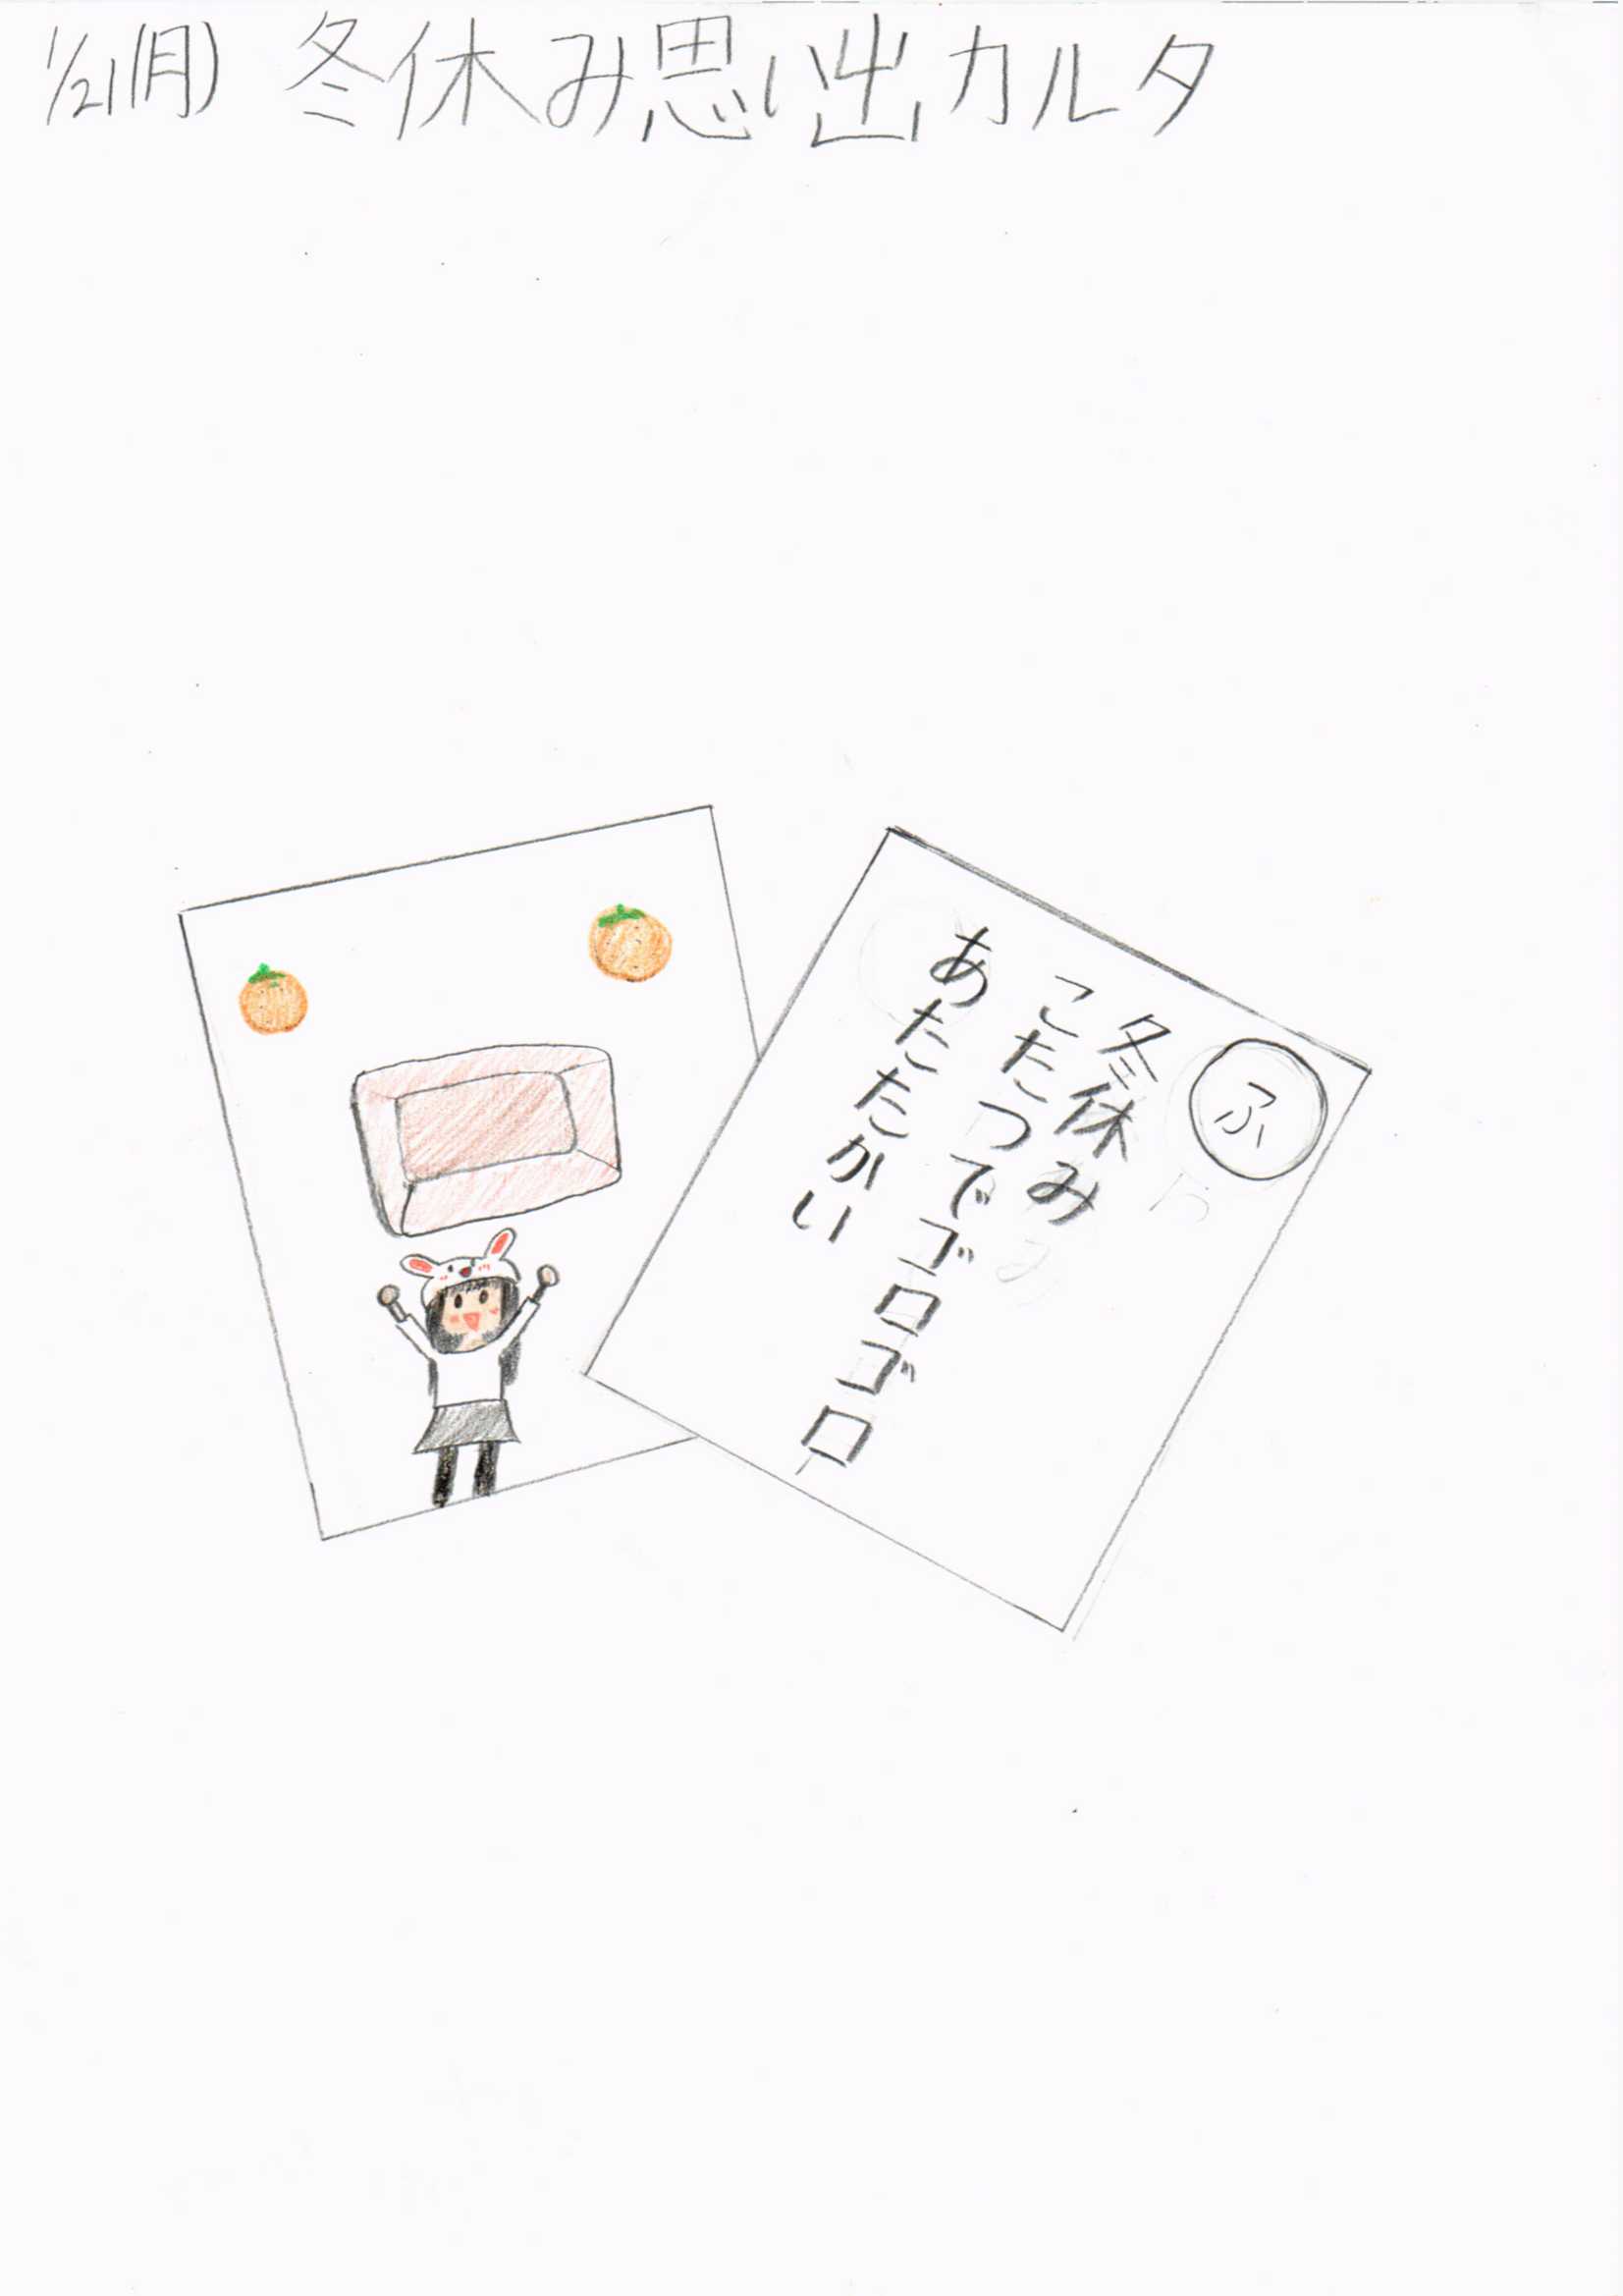 1/21(月) 冬休み思い出カルタ
ふ
冬休み
こたつでゴロゴロ
あたたかい